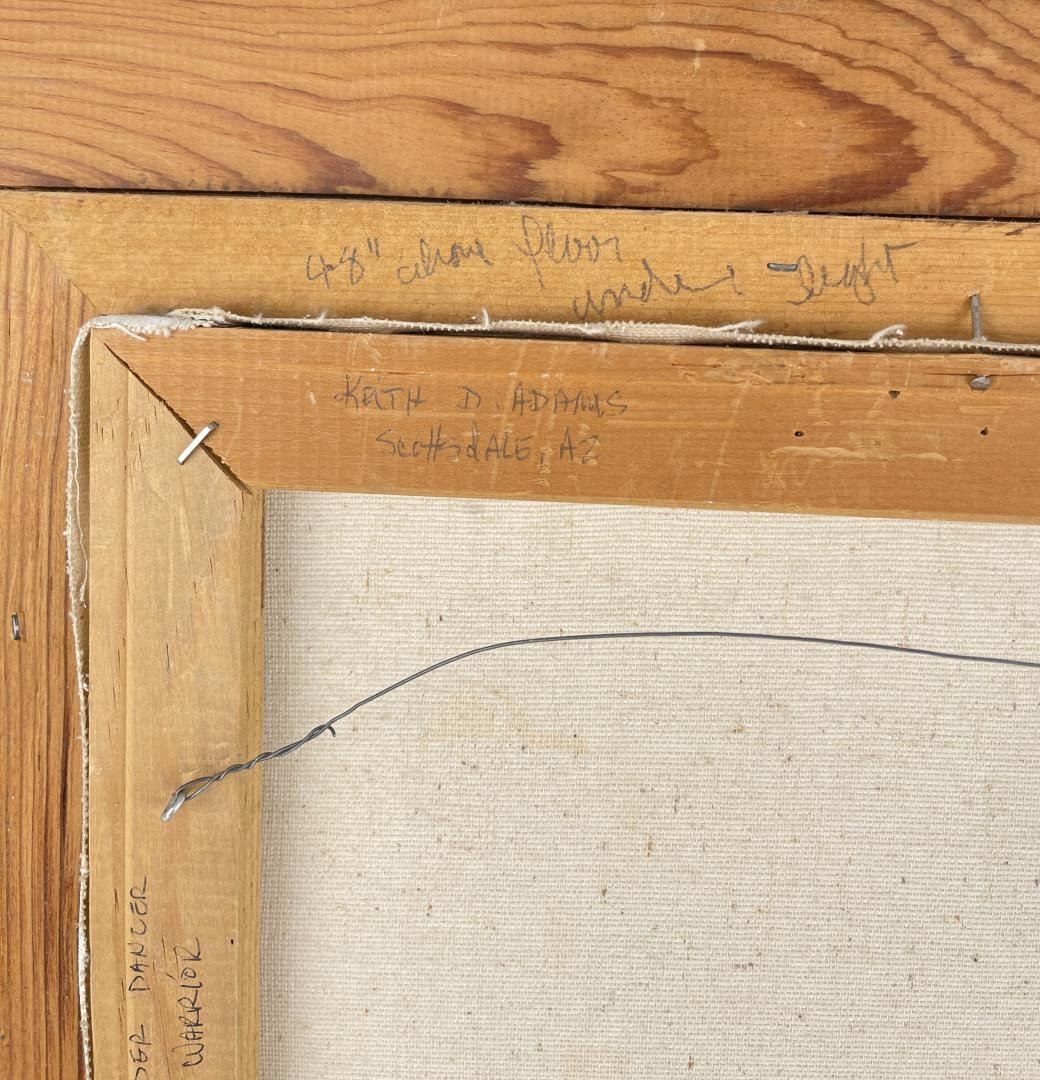 48" above floor
under - light
KEITH D. ADAMS
ScottsdALE, AZ
DER DANCER
WARRIOR